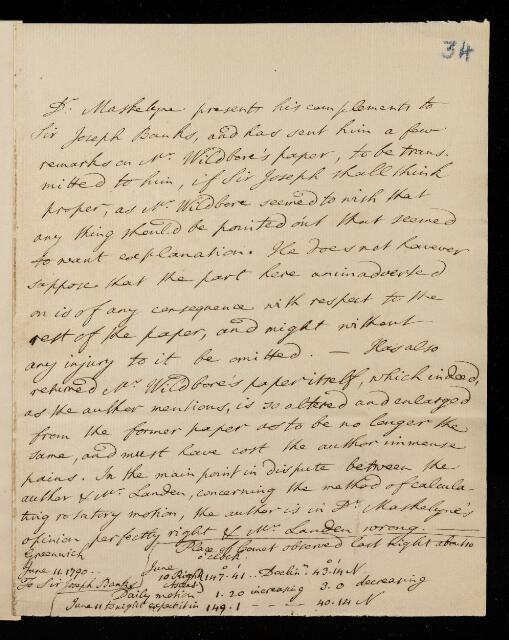 34
Dr. Maskelyne presents his complements to
Sir Joseph Banks, and has sent him a few
remarks on Mr. Wildbore's paper, to be trans-
mitted to him, if Sir Joseph shall think
proper, as Mr. Wildbore seemed to wish that
any thing should be pointed out that seemed
to want explanation. He does not however
suppose that the part here animadverted
on is of any consequence with respect to the
rest of the paper, and might without
any injury to it be omitted. — Has also
returned Mr. Wildbore's paper itself, which indeed,
as the author mentions, is so altered and enlarged
from the former paper as to be no longer the
same, and must have cost the author immense
pains. In the main point in dispute between the
author & Mr. Landen, concerning the method of calcula-
ting rotatory motion, the author is in Dr. Maskelyne's
opinion perfectly right & Mr. Landen wrong.
Greenwich Place of Comet observed last night about 10
o'clock.
June 11. 1790.. June
10 Right Ascens. 147°.41' .. Declinn. 43°.14' N
To Sir Joseph Banks
Daily motion 1.20 increasing 3.0 decreasing
June 11 tonight expect it in 149.1 - - - 40.14 N